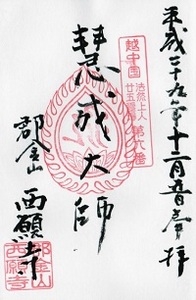 平成二十九年十二月吉日奉拝
越中国
法然上人
廿五霊場
第八番
慧成大師
郡金山
西願寺
郡金山
西願寺